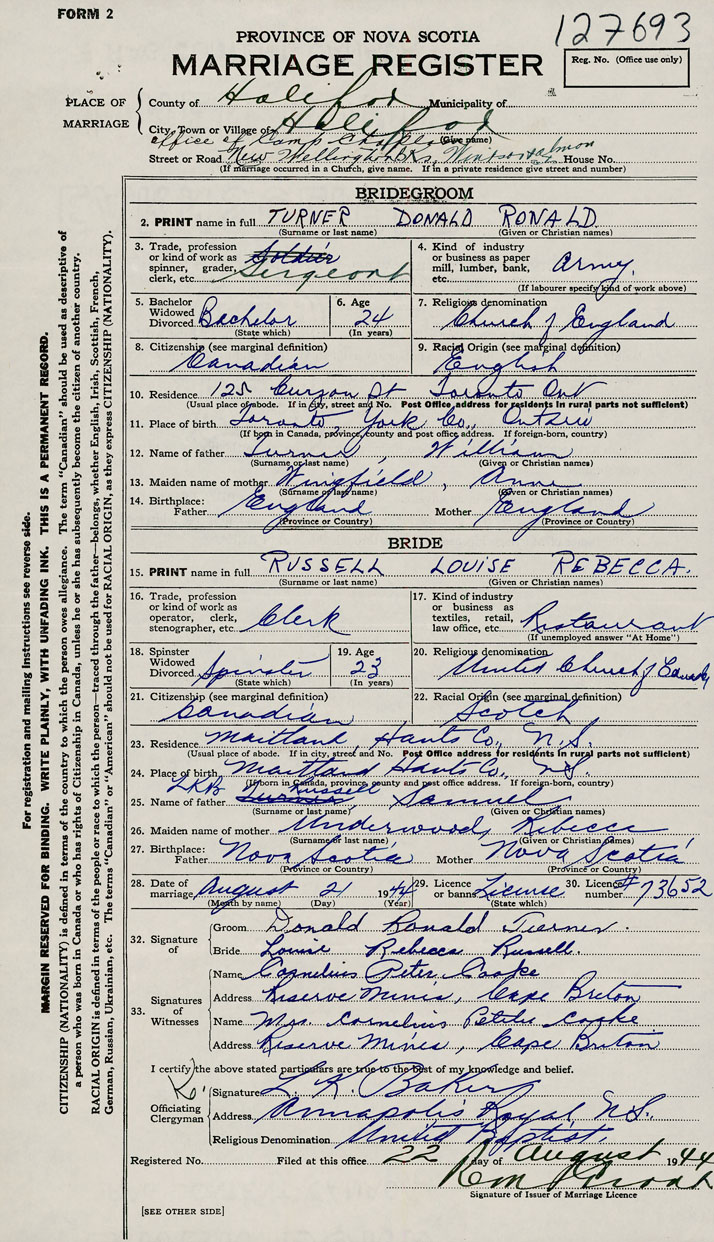 FORM 2
127693
PROVINCE OF NOVA SCOTIA
MARRIAGE REGISTER
Reg. No. (Office use only)
PLACE OF MARRIAGE
County of Halifax Municipality of
City, Town or Village of Halifax
office of Camp Chaplain (Give name)
Street or Road New Wellington Bks, Windsor House No.
(If marriage occurred in a Church, give name. If in a private residence give street and number)
BRIDEGROOM
2. PRINT name in full TURNER DONALD RONALD
(Surname or last name) (Given or Christian names)
3. Trade, profession or kind of work as spinner, grader, clerk, etc. Soldier Sergeant
4. Kind of industry or business as paper mill, lumber, bank, etc. Army.
(If labourer specify kind of work above)
5. Bachelor Widowed Divorced Bachelor (State which)
6. Age 24 (In years)
7. Religious denomination Church of England
8. Citizenship (see marginal definition) Canadian
9. Racial Origin (see marginal definition) English
10. Residence 125 Curzon St Toronto Ont
(Usual place of abode. If in city, street and No. Post Office address for residents in rural parts not sufficient)
11. Place of birth Toronto, York Co., Ontario
(If born in Canada, province, county and post office address. If foreign-born, country)
12. Name of father Turner, William
(Surname or last name) (Given or Christian names)
13. Maiden name of mother Wingfield, Anne
(Surname or last name) (Given or Christian names)
14. Birthplace: Father England Mother England
(Province or Country) (Province or Country)
BRIDE
15. PRINT name in full RUSSELL LOUISE REBECCA.
(Surname or last name) (Given or Christian names)
16. Trade, profession or kind of work as operator, clerk, stenographer, etc. Clerk
17. Kind of industry or business as textiles, retail, law office, etc. Restaurant
(If unemployed answer "At Home")
18. Spinster Widowed Divorced Spinster (State which)
19. Age 23 (In years)
20. Religious denomination United Church of Canada
21. Citizenship (see marginal definition) Canadian
22. Racial Origin (see marginal definition) Scotch
23. Residence Maitland, Hants Co., N.S.
(Usual place of abode. If in city, street and No. Post Office address for residents in rural parts not sufficient)
24. Place of birth Maitland Hants Co., N.S.
(If born in Canada, province, county and post office address. If foreign-born, country)
LKB Russell
25. Name of father Turner, Samuel
(Surname or last name) (Given or Christian names)
26. Maiden name of mother Underwood, Rebecca
(Surname or last name) (Given or Christian names)
27. Birthplace: Father Nova Scotia Mother Nova Scotia
(Province or Country) (Province or Country)
28. Date of marriage August 21 1944
(Month by name) (Day) (Year)
29. Licence or banns License (State which)
30. Licence number #73652
32. Signature of
Groom Donald Ronald Turner.
Bride Louise Rebecca Russell.
33. Signatures of Witnesses
Name Cornelius Peter Cooke
Address Reserve Mines, Cape Breton
Name Mrs. Cornelius Peter Cooke
Address Reserve Mines, Cape Breton
I certify the above stated particulars are true to the best of my knowledge and belief.
Officiating Clergyman
Signature L. K. Baker
Address Annapolis Royal, N.S.
Religious Denomination United Baptist.
Registered No. Filed at this office 22 day of August 1944
Signature of Issuer of Marriage Licence
[SEE OTHER SIDE]
For registration and mailing instructions see reverse side.
MARGIN RESERVED FOR BINDING. WRITE PLAINLY, WITH UNFADING INK. THIS IS A PERMANENT RECORD.
CITIZENSHIP (NATIONALITY) is defined in terms of the country to which the person owes allegiance. The term "Canadian" should be used as descriptive of
a person who was born in Canada or who has rights of Citizenship in Canada, unless he or she has subsequently become the citizen of another country.
RACIAL ORIGIN is defined in terms of the people or race to which the person—traced through the father—belongs, whether English, Irish, Scottish, French,
German, Russian, Ukrainian, etc. The terms "Canadian" or "American" should not be used for RACIAL ORIGIN, as they express CITIZENSHIP (NATIONALITY).